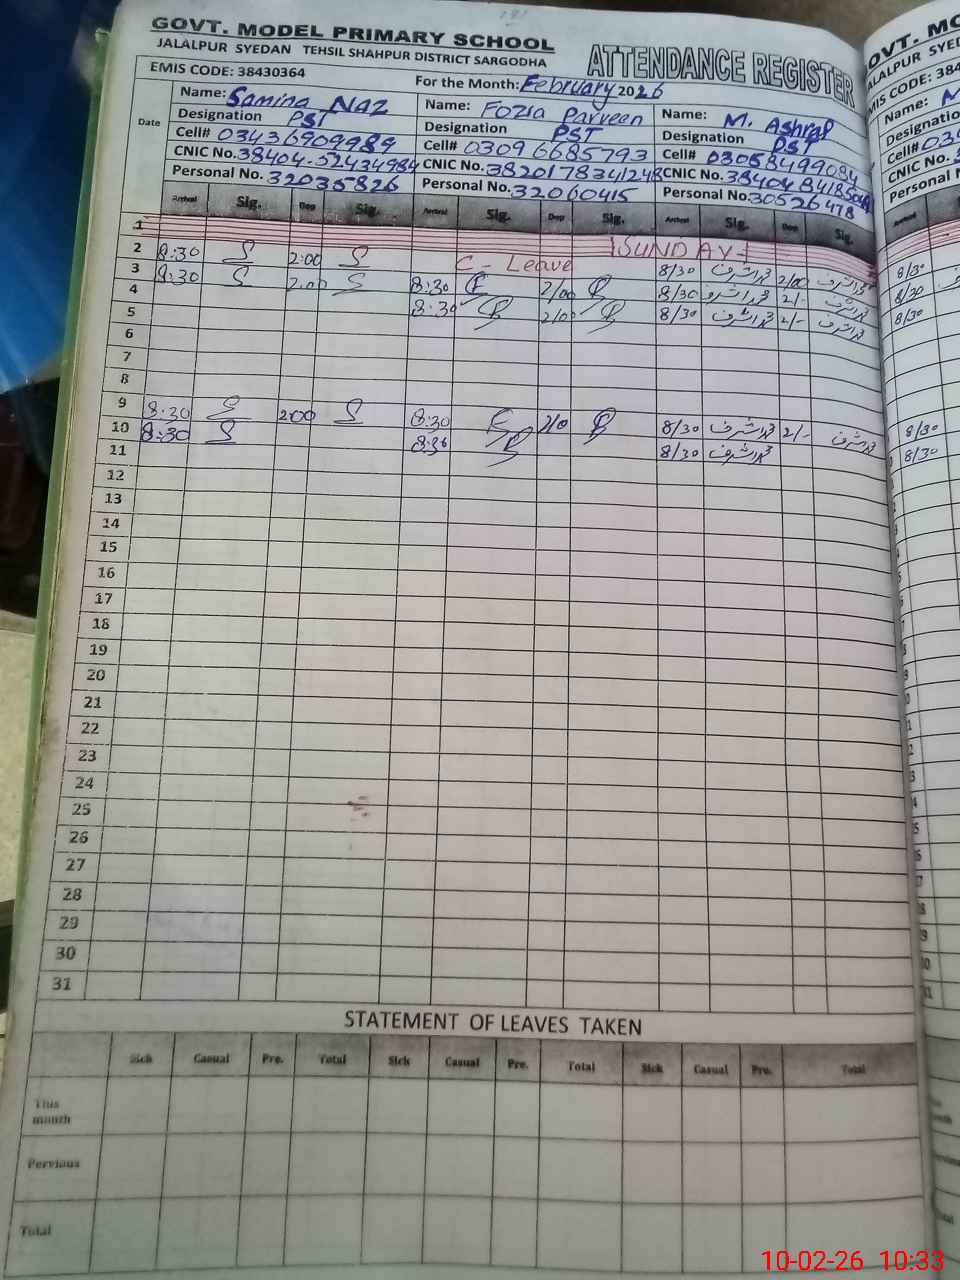 GOVT. MODEL PRIMARY SCHOOL
JALALPUR SYEDAN TEHSIL SHAHPUR DISTRICT SARGODHA
ATTENDANCE REGISTER
EMIS CODE: 38430364
For the Month: February 2026
Date
Name: Samina Naz
Designation PST
Cell# 03436909989
CNIC No. 38404-52434984
Personal No. 32035826
Name: Fozia Parveen
Designation PST
Cell# 03096685793
CNIC No. 3820178341248
Personal No. 32060415
Name: M. Ashraf
Designation PST
Cell# 03058499084
CNIC No.
Personal No. 30526478
Arrival Sig. Dep Sig. Arrival Sig. Dep Sig. Arrival Sig. Dep Sig.
1 SUNDAY
2 8:30 2:00 C - Leave 8/30 محمد اشرف 2/00 محمد اشرف
3 8:30 2:00 8:30 2/00 8/30 محمد اشرف 2/- محمد اشرف
4 8:30 2/0 8/30 محمد اشرف 2/- محمد اشرف
5
6
7
8
9 8:30 2:00 8:30 2/0 8/30 محمد اشرف 2/- محمد اشرف
10 8:30 8:30 8/30 محمد اشرف
11
12
13
14
15
16
17
18
19
20
21
22
23
24
25
26
27
28
29
30
31
STATEMENT OF LEAVES TAKEN
Sick Casual Pre. Total Sick Casual Pre. Total Sick Casual Pre. Total
This month
Pervious
Total
10-02-26 10:33